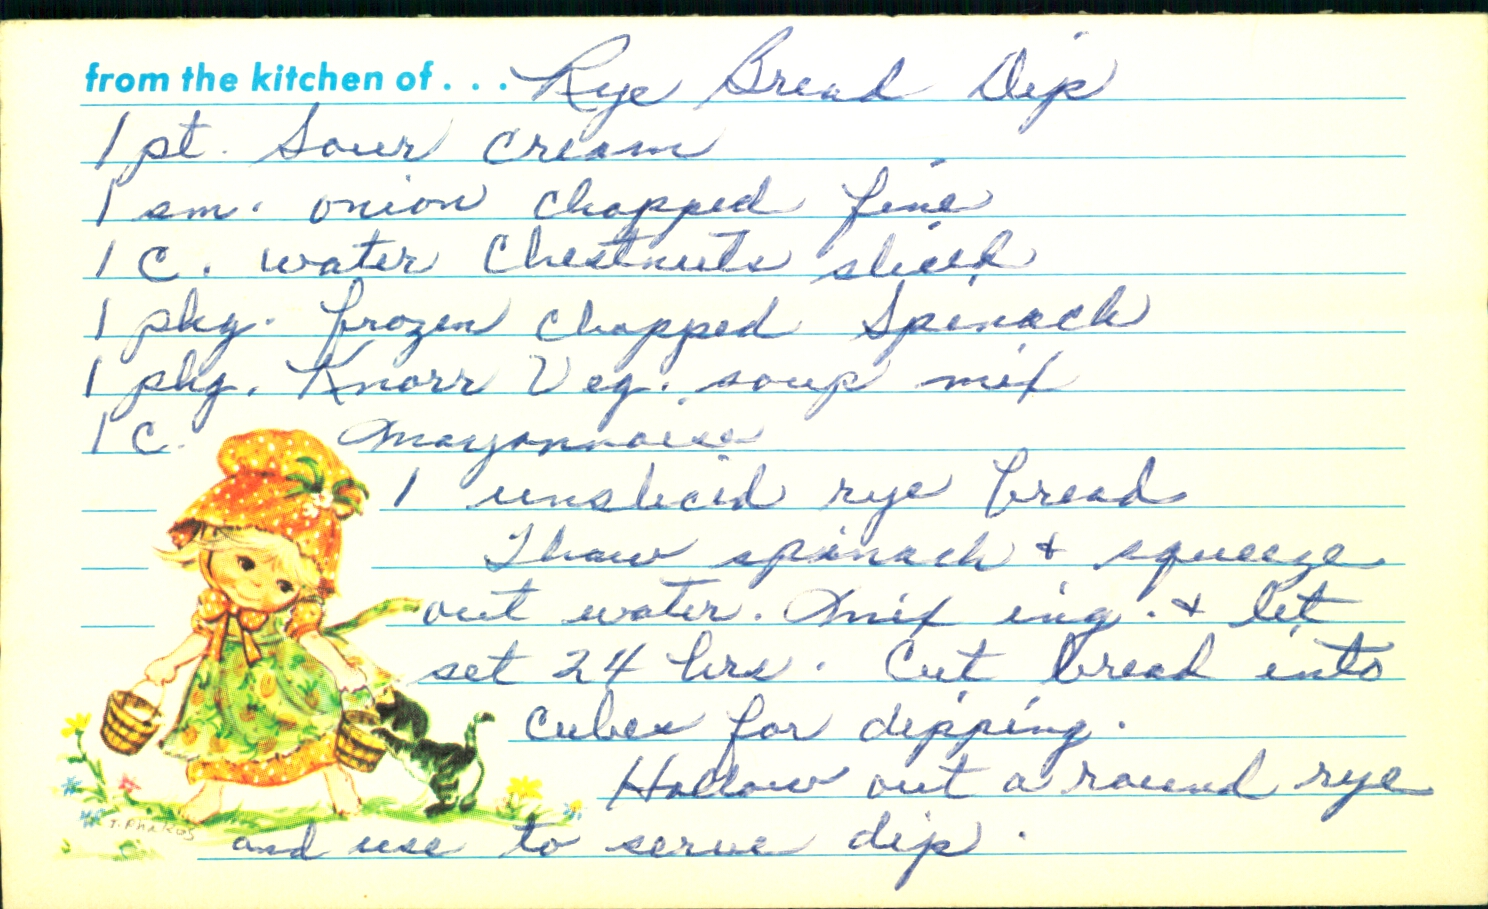 from the kitchen of . . . Rye Bread Dip
1 pt. Sour cream
1 sm. onion chopped fine
1 c. water chestnuts sliced
1 pkg. frozen chopped Spinach
1 pkg. Knorr Veg. soup mix
1 c. Mayonnaise
1 unsliced rye bread
Thaw spinach & squeeze
out water. Mix ing. & let
set 24 hrs. Cut bread into
cubes for dipping.
Hollow out a round rye
J. PHAROS
and use to serve dip.